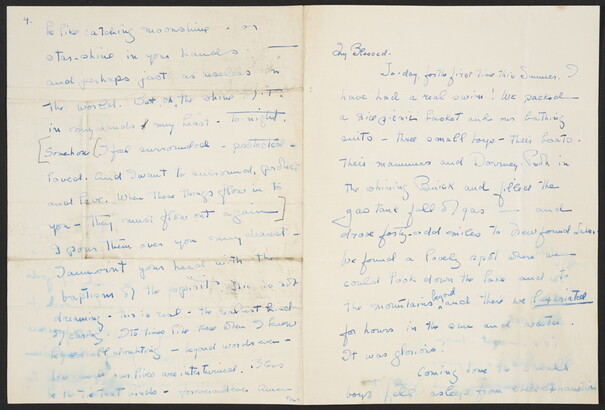 4.
be like catching moonshine - or
star-shine in your hands -
and perhaps just as useless in
the world. But oh, the shine of it
in my hands & my heart - to-night.
[Somehow I feel surrounded - protected -
loved. And I want to surround, protect
and love. When these things flow in to
you - they must flow out again]
I pour them over you my dearest -
I annoint your head with the
baptism of the spirit. This is not
dreaming - this is real - the realest kind
of living. It's time like these when I know
beyond all doubting - beyond words even -
how our lives are intertwined.
to the last - forever and ever Amen
My Blessed -
To-day for the first time this Summer, I
have had a real swim! We packed
a nice picnic basket and our bathing
suits - three small boys - their boats -
their mammas and Pook in
the shining Buick and filled the
gas tank full of gas - and
drove forty-odd miles to Newfound Lake.
We found a lovely spot where we
could look down the lake and
the mountains beyond and there we
for hours in the sun and water.
It was glorious.
Coming home the small
boys fell asleep from